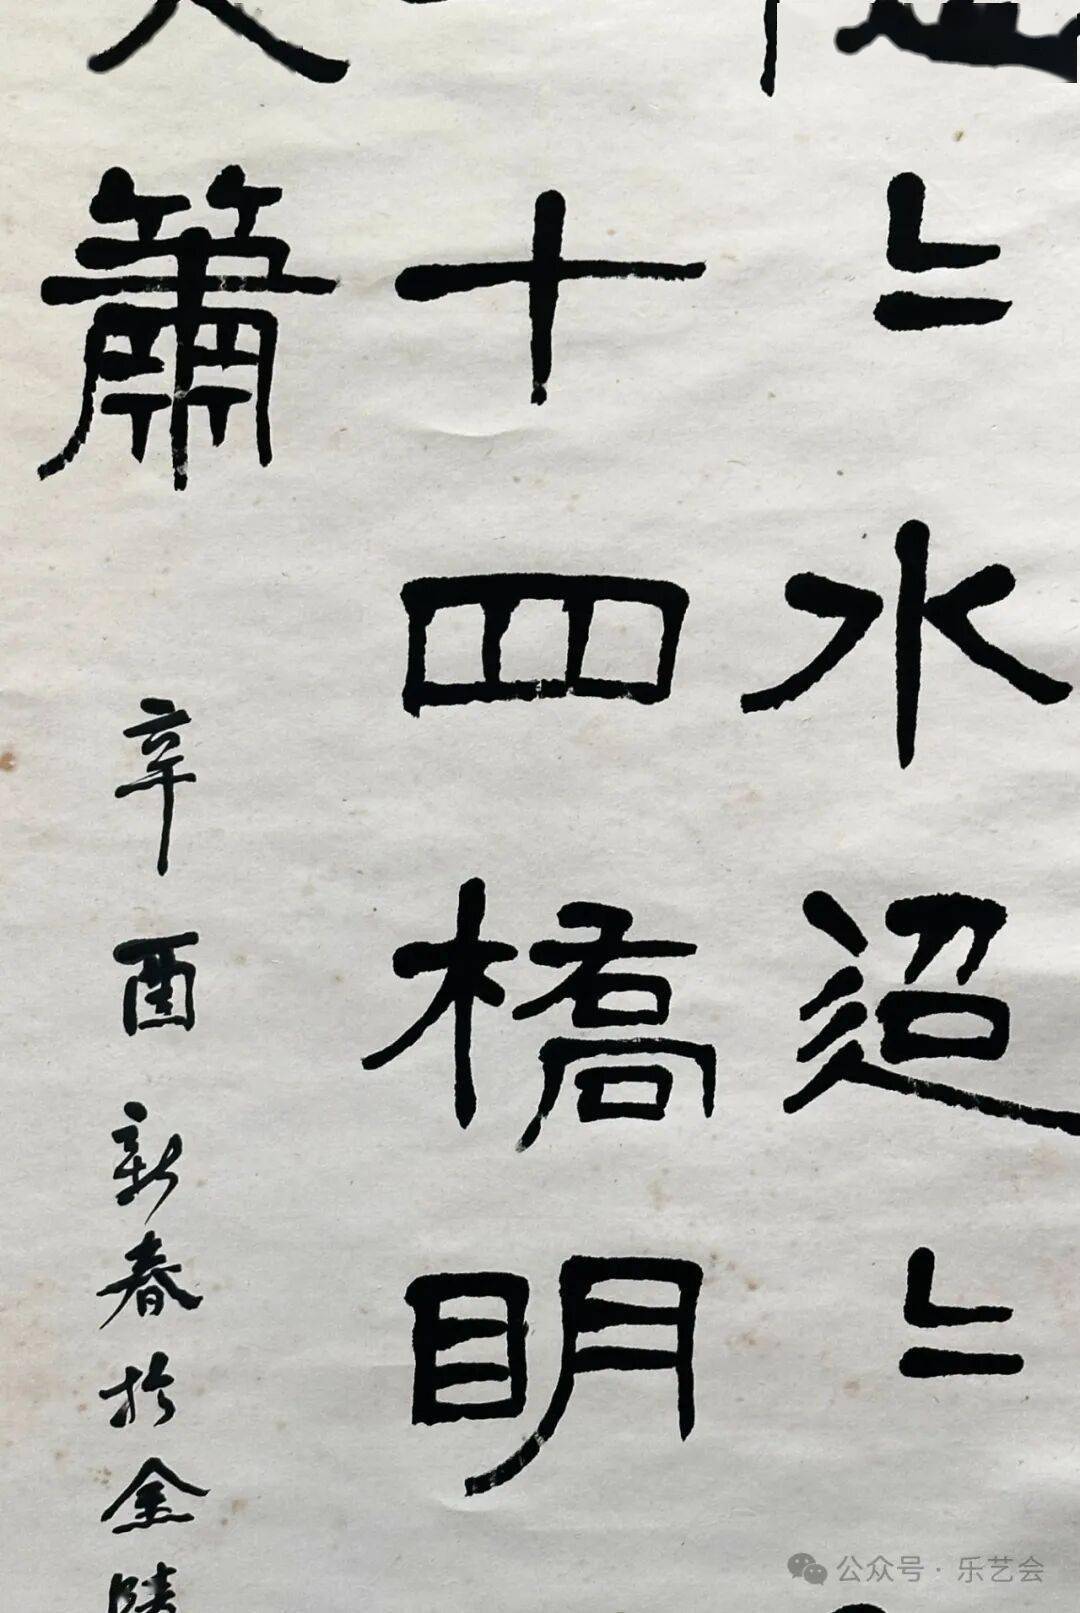 〻水迢〻
十四橋明
簫
辛酉新春於金陵
公众号·乐艺会